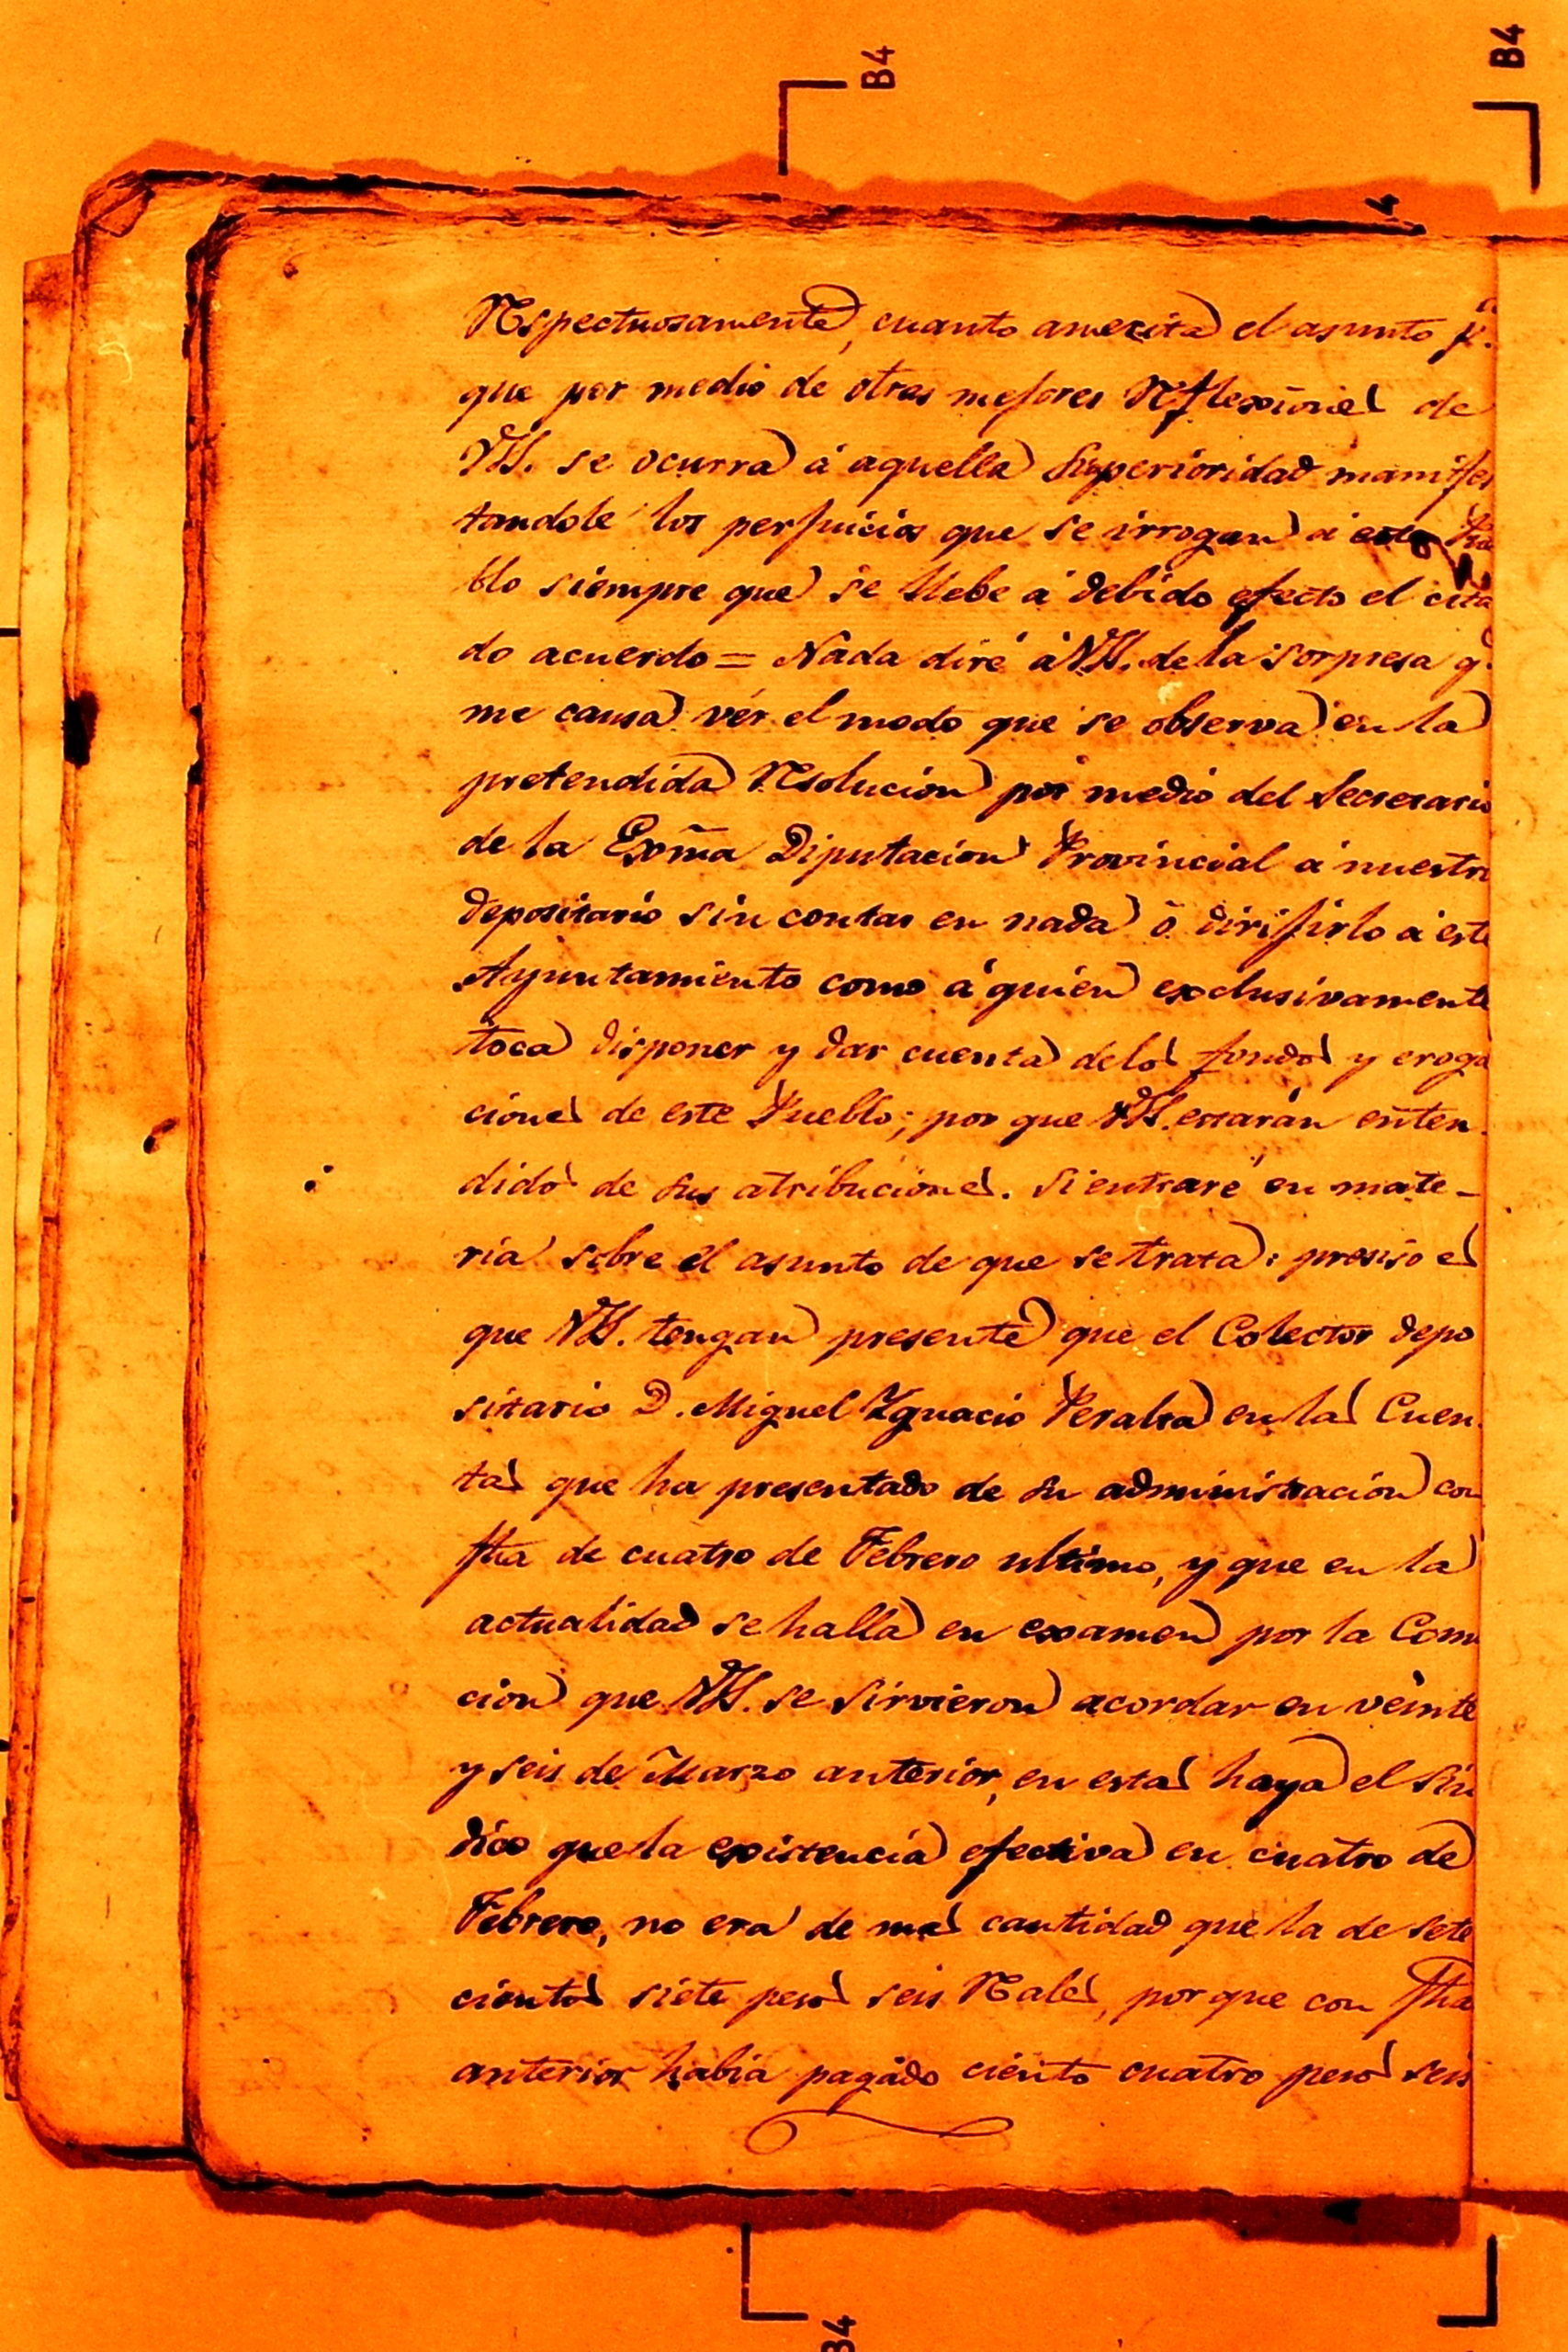 B4
B4
Respectuosamente, cuanto amerita el asunto p.ª
que por medio de otras mejores Reflexiones de
VSS. se ocurra á aquella Superioridad manifes
tandole los perjuicios que se irrogan á este Pue
blo siempre que se llebe á debido efecto el cita
do acuerdo = Nada diré á VSS. de la sorpresa q.e
me causa vér el modo que se observa en la
pretendida Resolucion por medio del Secretario
de la Exma Diputacion Provincial á nuestro
depositario sin contar en nada ó dirijirlo á este
Ayuntamiento como á quien exclusivamente
toca disponer y dar cuenta delos fondos y eroga
ciones de este Pueblo; por que VSS. estarán enten
didos de sus atribuciones. Si entraré en mate-
ria sobre el asunto de que se trata: presiso es
que VSS. tengan presente que el Colector depo
sitario D. Miguel Ygnacio Peralta en las Cuen
tas que ha presentado de su administracion con
fha de cuatro de Febrero ultimo, y que en la
actualidad se halla en examen por la Comi
cion que VSS. se sirvieron acordar en veinte
y seis de Marzo anterior, en estas haya el Sin
dico que la existencia efectiva en cuatro de
Febrero, no era de mas cantidad que la de sete
cientos siete pesos seis Reales, porque con fha
anterior habia pagado ciento cuatro pesos seis
B4